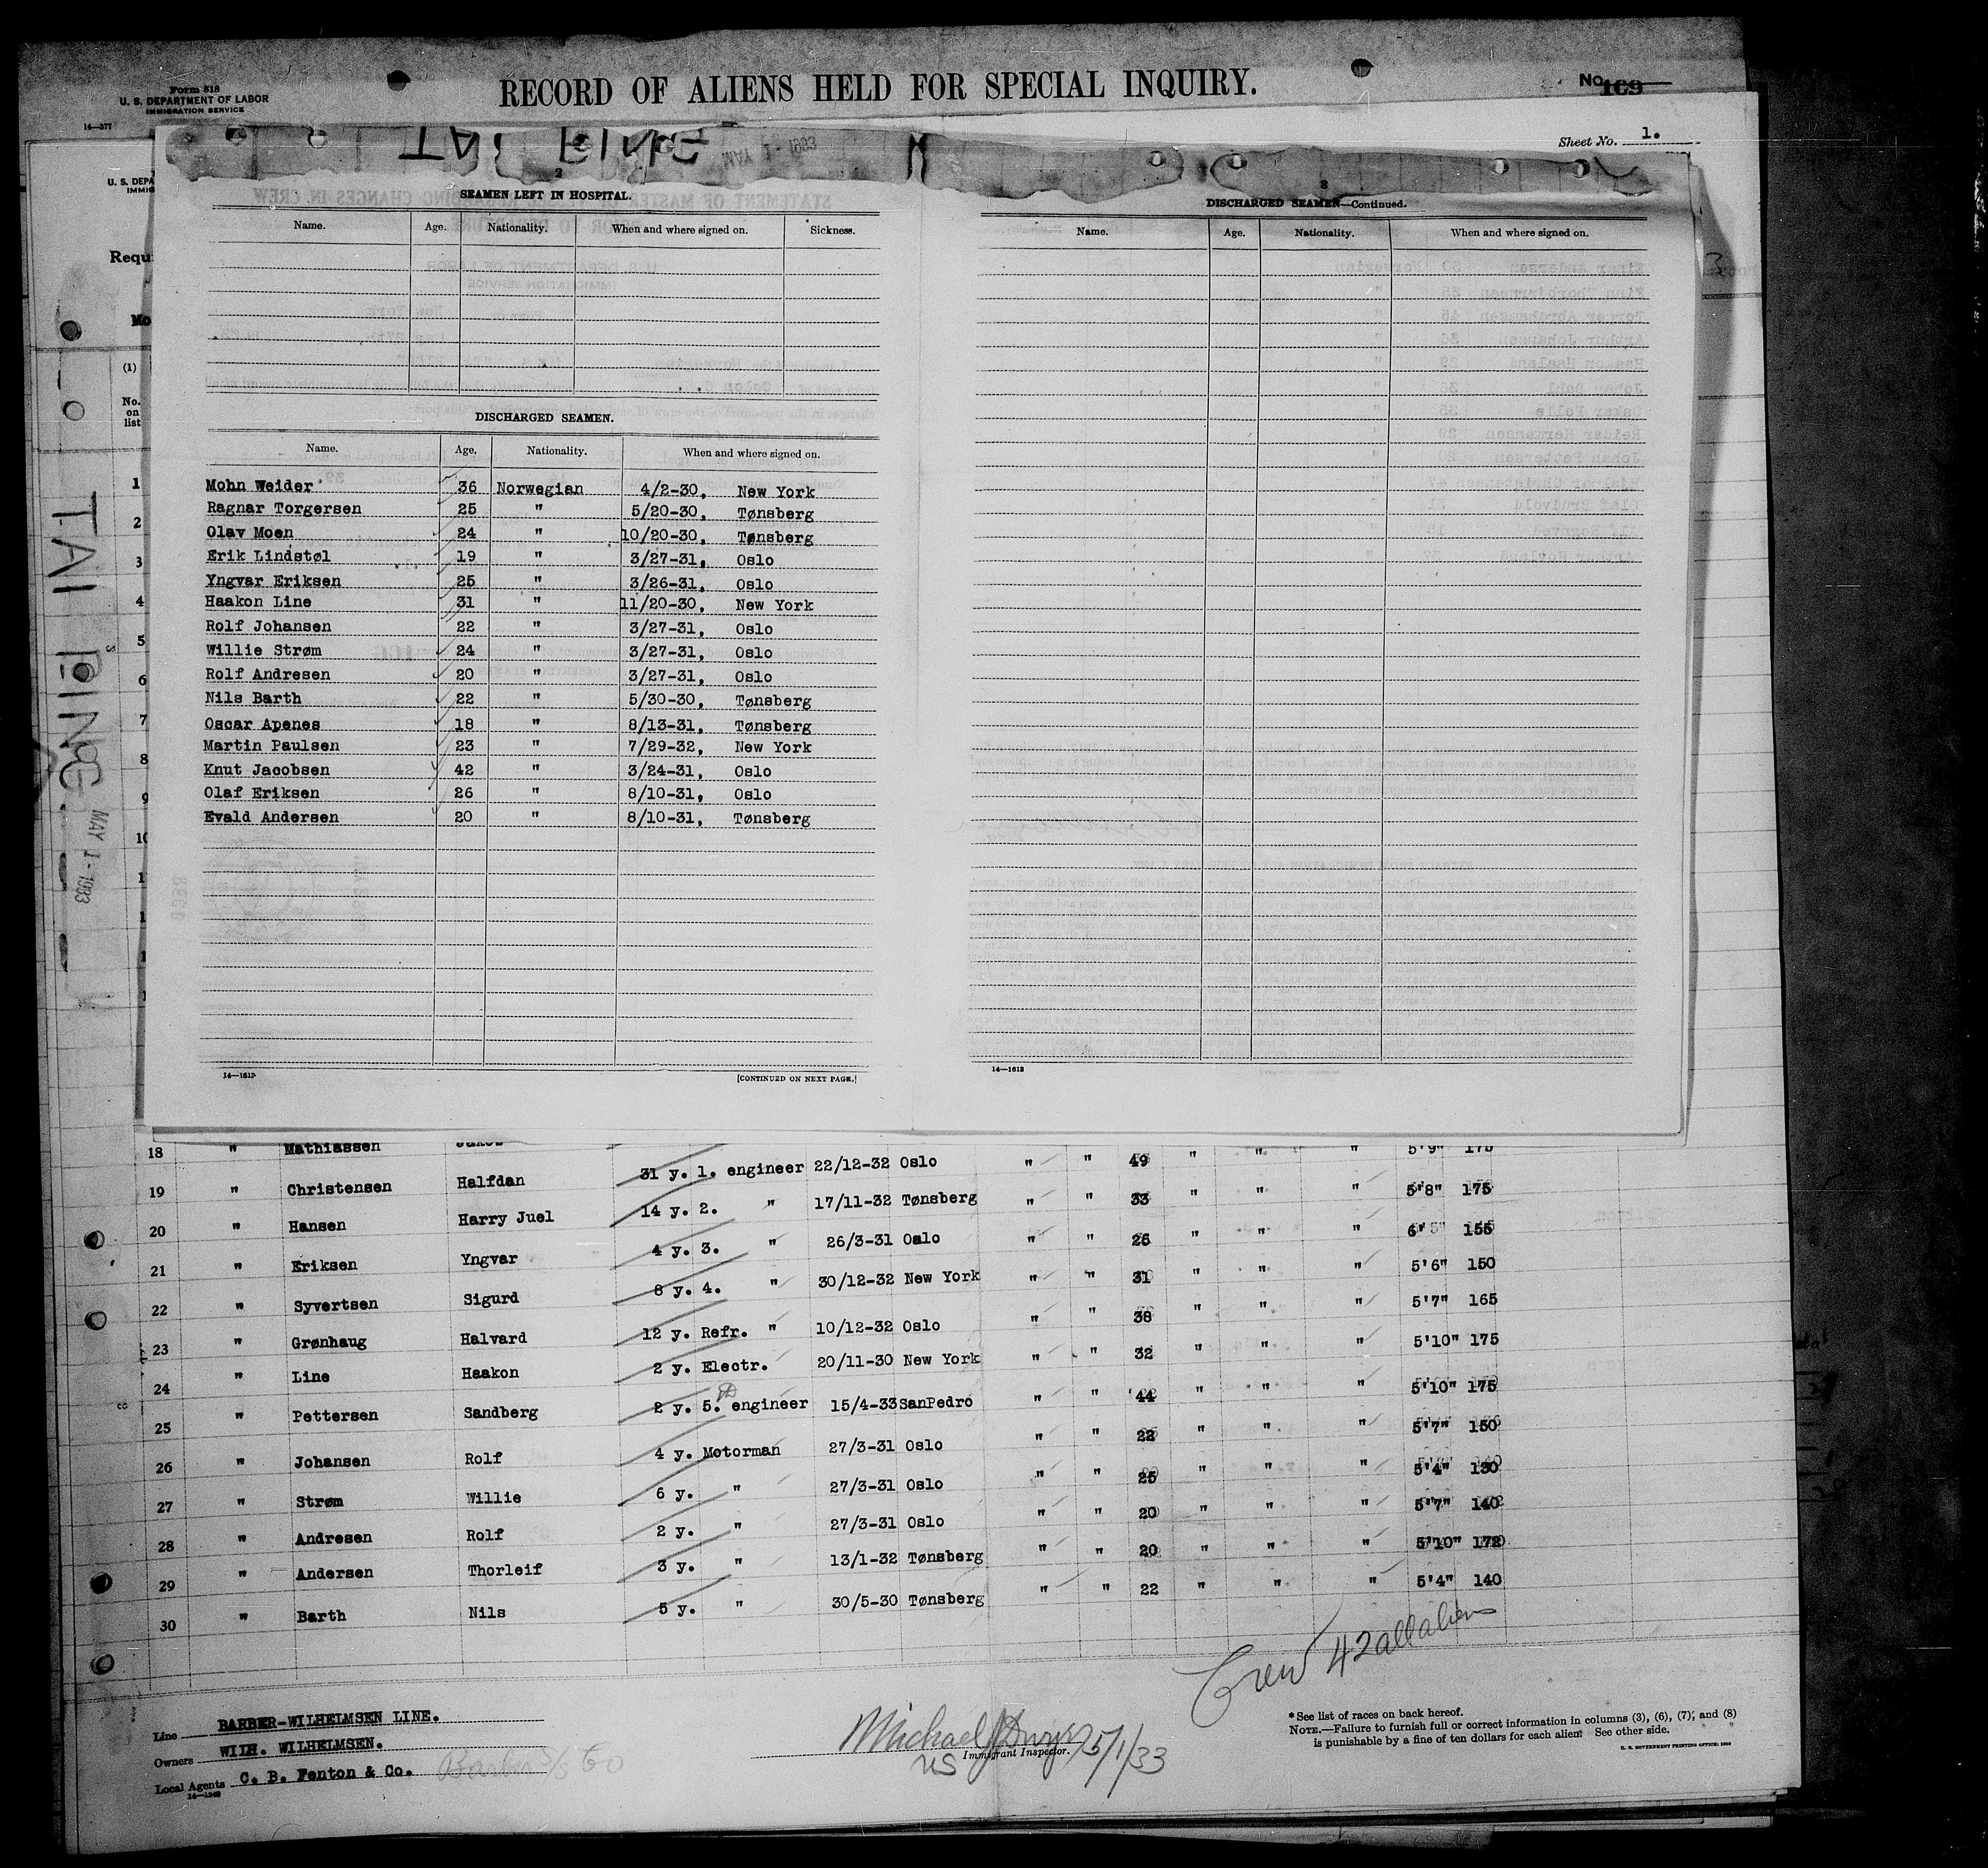 Form 518
U. S. DEPARTMENT OF LABOR
IMMIGRATION SERVICE
14—377
RECORD OF ALIENS HELD FOR SPECIAL INQUIRY.
No. 169
Sheet No. 1.
TAI PING
MAY 1 - 1933
U. S. DEPA
IMMIG
Requi
Mo
(1)
No. on list
TAI PING
MAY 1 - 1933
2
SEAMEN LEFT IN HOSPITAL.
Name. Age. Nationality. When and where signed on. Sickness.
DISCHARGED SEAMEN.
Name. Age. Nationality. When and where signed on.
Mohn Weider 36 Norwegian 4/2-30, New York
Ragnar Torgersen 25 " 5/20-30, Tønsberg
Olav Moen 24 " 10/20-30, Tønsberg
Erik Lindstøl 19 " 3/27-31, Oslo
Yngvar Eriksen 25 " 3/26-31, Oslo
Haakon Line 31 " 11/20-30, New York
Rolf Johansen 22 " 3/27-31, Oslo
Willie Strøm 24 " 3/27-31, Oslo
Rolf Andresen 20 " 3/27-31, Oslo
Nils Barth 22 " 5/30-30, Tønsberg
Oscar Apenes 18 " 8/13-31, Tønsberg
Martin Paulsen 23 " 7/29-32, New York
Knut Jacobsen 42 " 3/24-31, Oslo
Olaf Eriksen 26 " 8/10-31, Oslo
Evald Andersen 20 " 8/10-31, Tønsberg
14—1613
[CONTINUED ON NEXT PAGE.]
3
DISCHARGED SEAMEN—Continued.
Name. Age. Nationality. When and where signed on.
14—1613
1
2
3
4
5
6
7
8
9
18 " Mathiassen 5'9" 175
19 " Christensen Halfdan 31 y. 1. engineer 22/12-32 Oslo " " 49 " " " 5'8" 175
20 " Hansen Harry Juel 14 y. 2. " 17/11-32 Tønsberg " " 33 " " " 6' 155
21 " Eriksen Yngvar 4 y. 3. " 26/3-31 Oslo " " 25 " " " 5'6" 150
22 " Syvertsen Sigurd 8 y. 4. " 30/12-32 New York " " 31 " " " 5'7" 165
23 " Grønhaug Halvard 12 y. Refr. " 10/12-32 Oslo " " 38 " " " 5'10" 175
24 " Line Haakon 2 y. Electr. 20/11-30 New York " " 32 " " " 5'10" 175
25 " Pettersen Sandberg 2 y. 5. engineer 15/4-33 SanPedro " " 44 " " " 5'7" 150
26 " Johansen Rolf 4 y. Motorman 27/3-31 Oslo " " 22 " " " 5'4" 130
27 " Strøm Willie 6 y. " 27/3-31 Oslo " " 25 " " " 5'7" 140
28 " Andresen Rolf 2 y. " 27/3-31 Oslo " " 20 " " " 5'10" 172
29 " Andersen Thorleif 3 y. " 13/1-32 Tønsberg " " 20 " " " 5'4" 140
30 " Barth Nils 5 y. " 30/5-30 Tønsberg " " 22 " " "
Crew 42 all aliens
Line BARBER-WILHELMSEN LINE.
Owners WILH. WILHELMSEN.
Local Agents C. B. Fenton & Co.
14—1240
Michael J Dwyer 5/1/33
US Immigrant Inspector.
* See list of races on back hereof.
NOTE.—Failure to furnish full or correct information in columns (3), (6), (7), and (8)
is punishable by a fine of ten dollars for each alien. See other side.
U. S. GOVERNMENT PRINTING OFFICE: